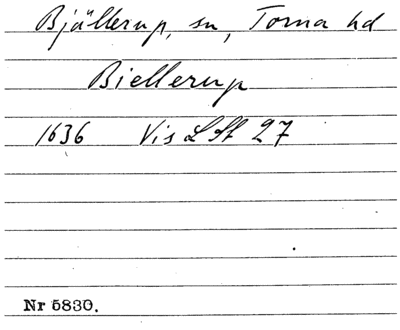 Bjällerup, sn, Torna hd
Biellerup
1636 Vis L St 27
Nr 5830.